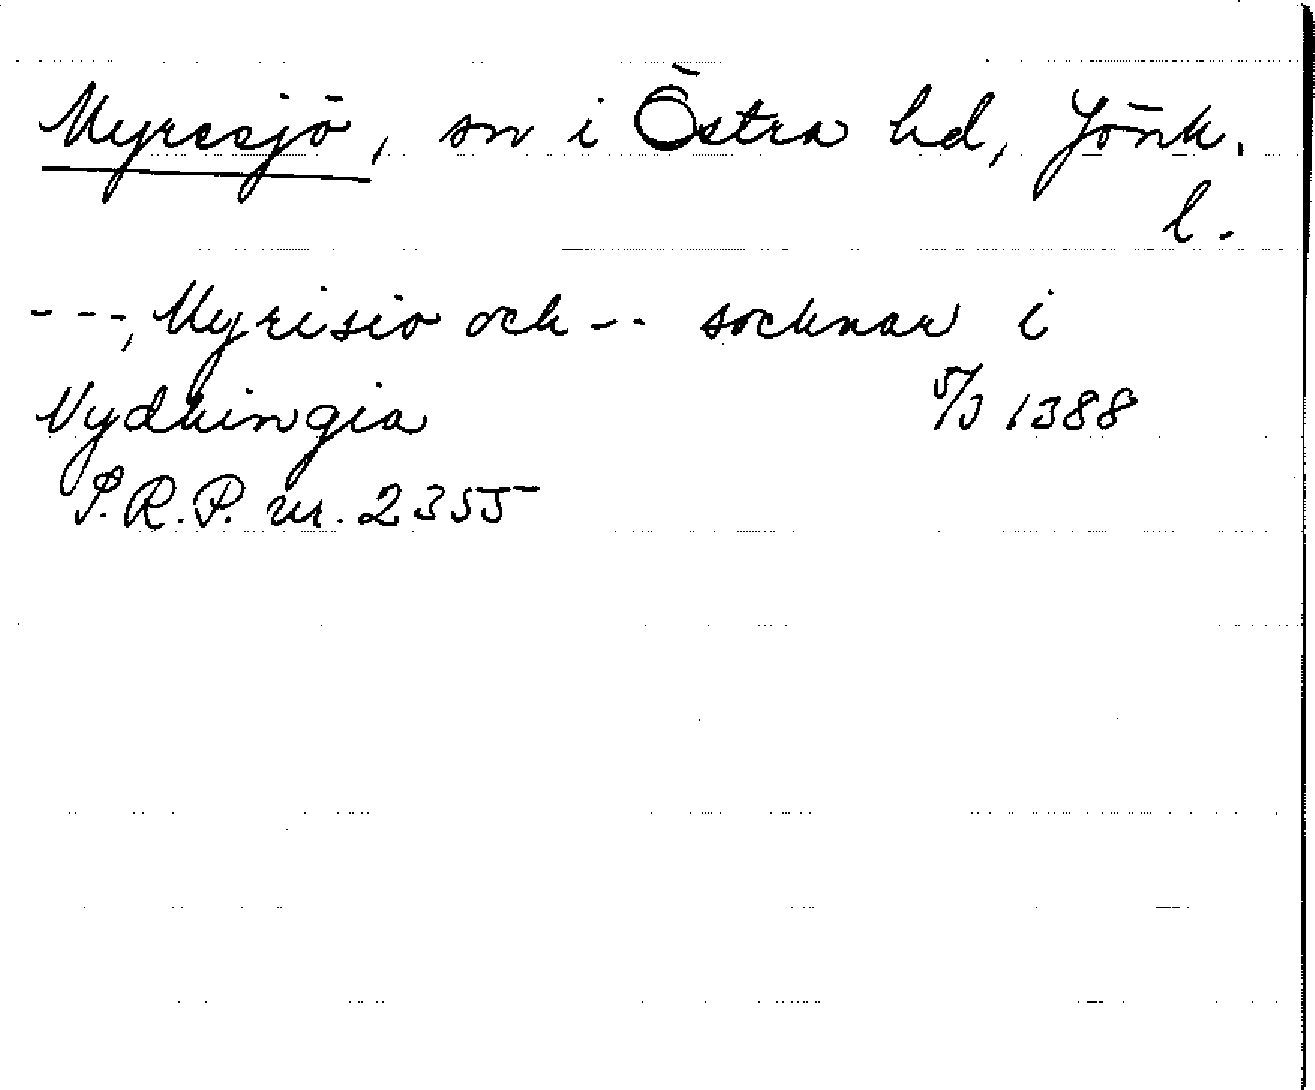 Myresjö, sn i Östra hd, Jönk.
l.
---, Myrisio och -- socknar i
Nydhingia 5/3 1388
S.R.P. nr. 2355